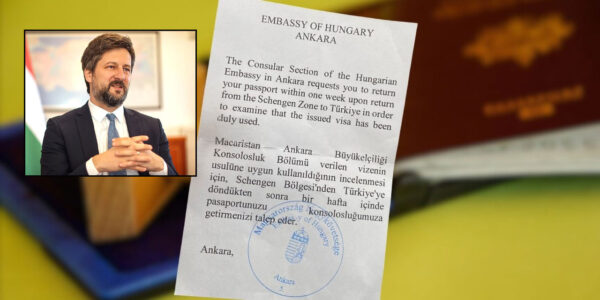 EMBASSY OF HUNGARY
ANKARA
The Consular Section of the Hungarian
Embassy in Ankara requests you to return
your passport within one week upon return
from the Schengen Zone to Türkiye in order
to examine that the issued visa has been
duly used.
Macaristan Ankara Büyükelçiliği
Konsolosluk Bölümü verilen vizenin
usulüne uygun kullanıldığının incelenmesi
için, Schengen Bölgesi'nden Türkiye'ye
döndükten sonra bir hafta içinde
pasaportunuzu konsolosluğumuza
getirmenizi talep eder.
Ankara,
Magyarország Nagykövetsége
Embassy of Hungary
Ankara
5.